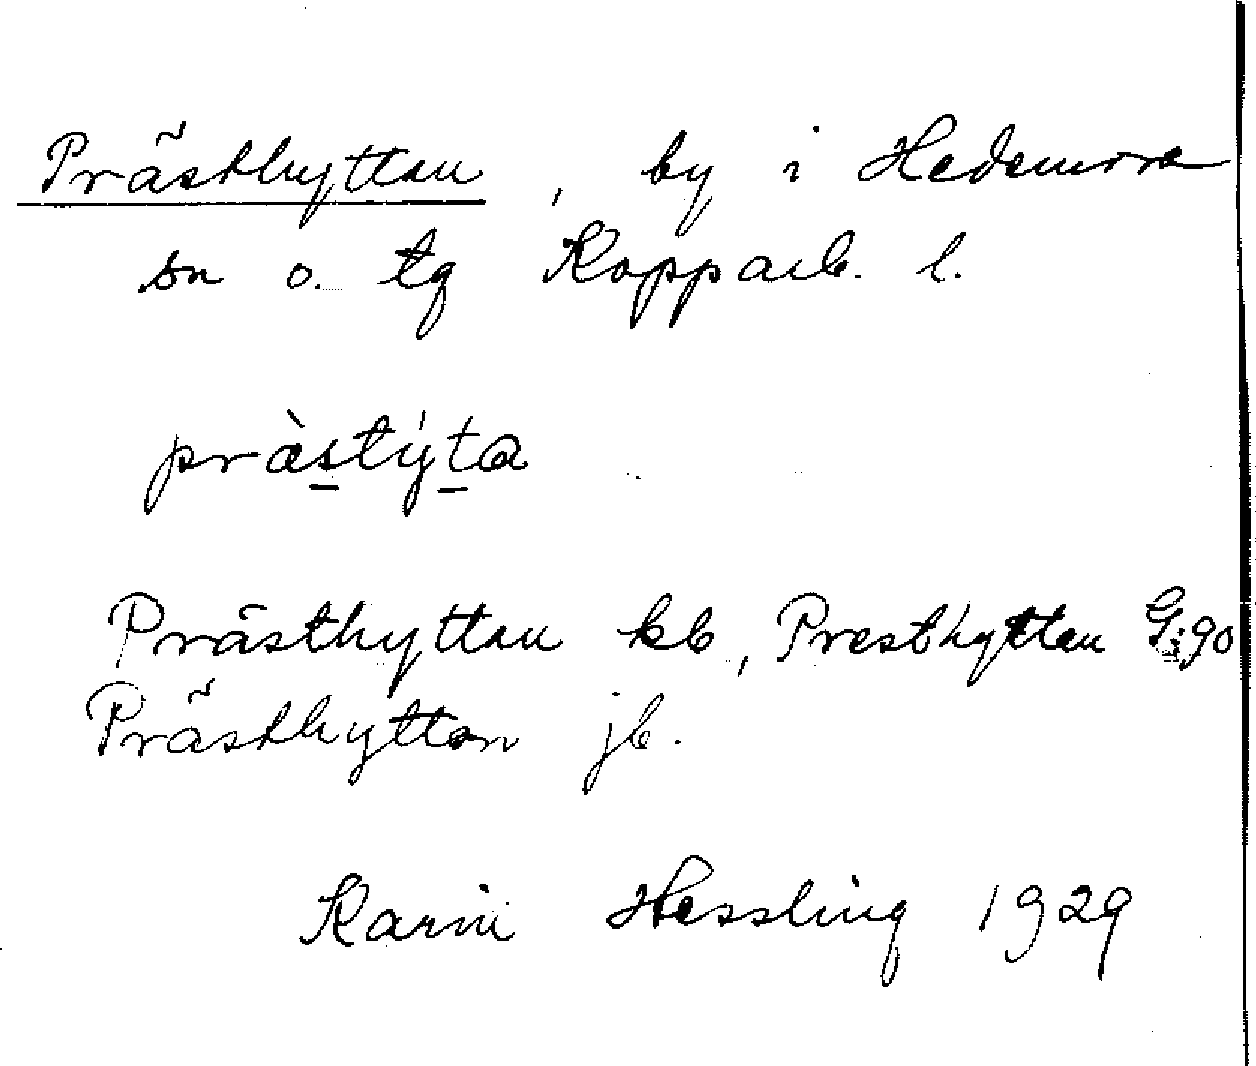 Prästhyttan, by i Hedemora
sn o. tg Kopparb. l.
pràstýta
Prästhyttan kb, Presthyttan G:90
Prästhyttan jb.
Karin Hessling 1929